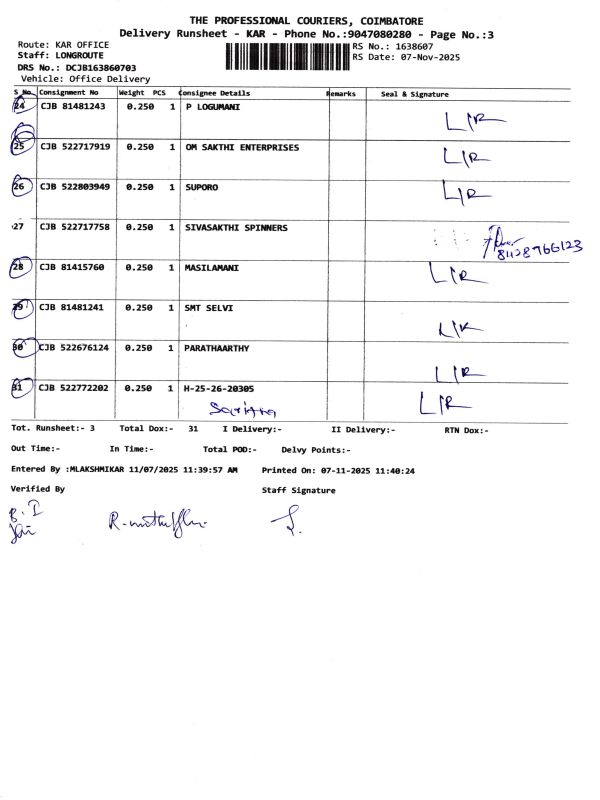 THE PROFESSIONAL COURIERS, COIMBATORE
Delivery Runsheet - KAR - Phone No.:9047080280 - Page No.:3
Route: KAR OFFICE RS No.: 1638607
Staff: LONGROUTE RS Date: 07-Nov-2025
DRS No.: DCJB163860703
Vehicle: Office Delivery
S No. Consignment No Weight PCS Consignee Details Remarks Seal & Signature
24 CJB 81481243 0.250 1 P LOGUMANI L/R
25 CJB 522717919 0.250 1 OM SAKTHI ENTERPRISES L/R
26 CJB 522803949 0.250 1 SUPORO L/R
27 CJB 522717758 0.250 1 SIVASAKTHI SPINNERS
28 CJB 81415760 0.250 1 MASILAMANI L/R
29 CJB 81481241 0.250 1 SMT SELVI L/R
30 CJB 522676124 0.250 1 PARATHAARTHY L/R
31 CJB 522772202 0.250 1 H-25-26-20305 L/R
Tot. Runsheet:- 3 Total Dox:- 31 I Delivery:- II Delivery:- RTN Dox:-
Out Time:- In Time:- Total POD:- Delvy Points:-
Entered By :MLAKSHMIKAR 11/07/2025 11:39:57 AM Printed On: 07-11-2025 11:40:24
Verified By Staff Signature